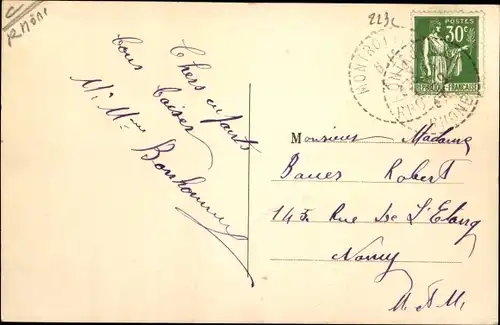 Rhône
223c
POSTES
30c
REPUBLIQUE FRANÇAISE
RHONE
Chers enfants
bons baisers
Mr Mme Bonhomme
Monsieur Madame
Bauer Robert
143 Rue De L'Etang
Nancy
M. et M.